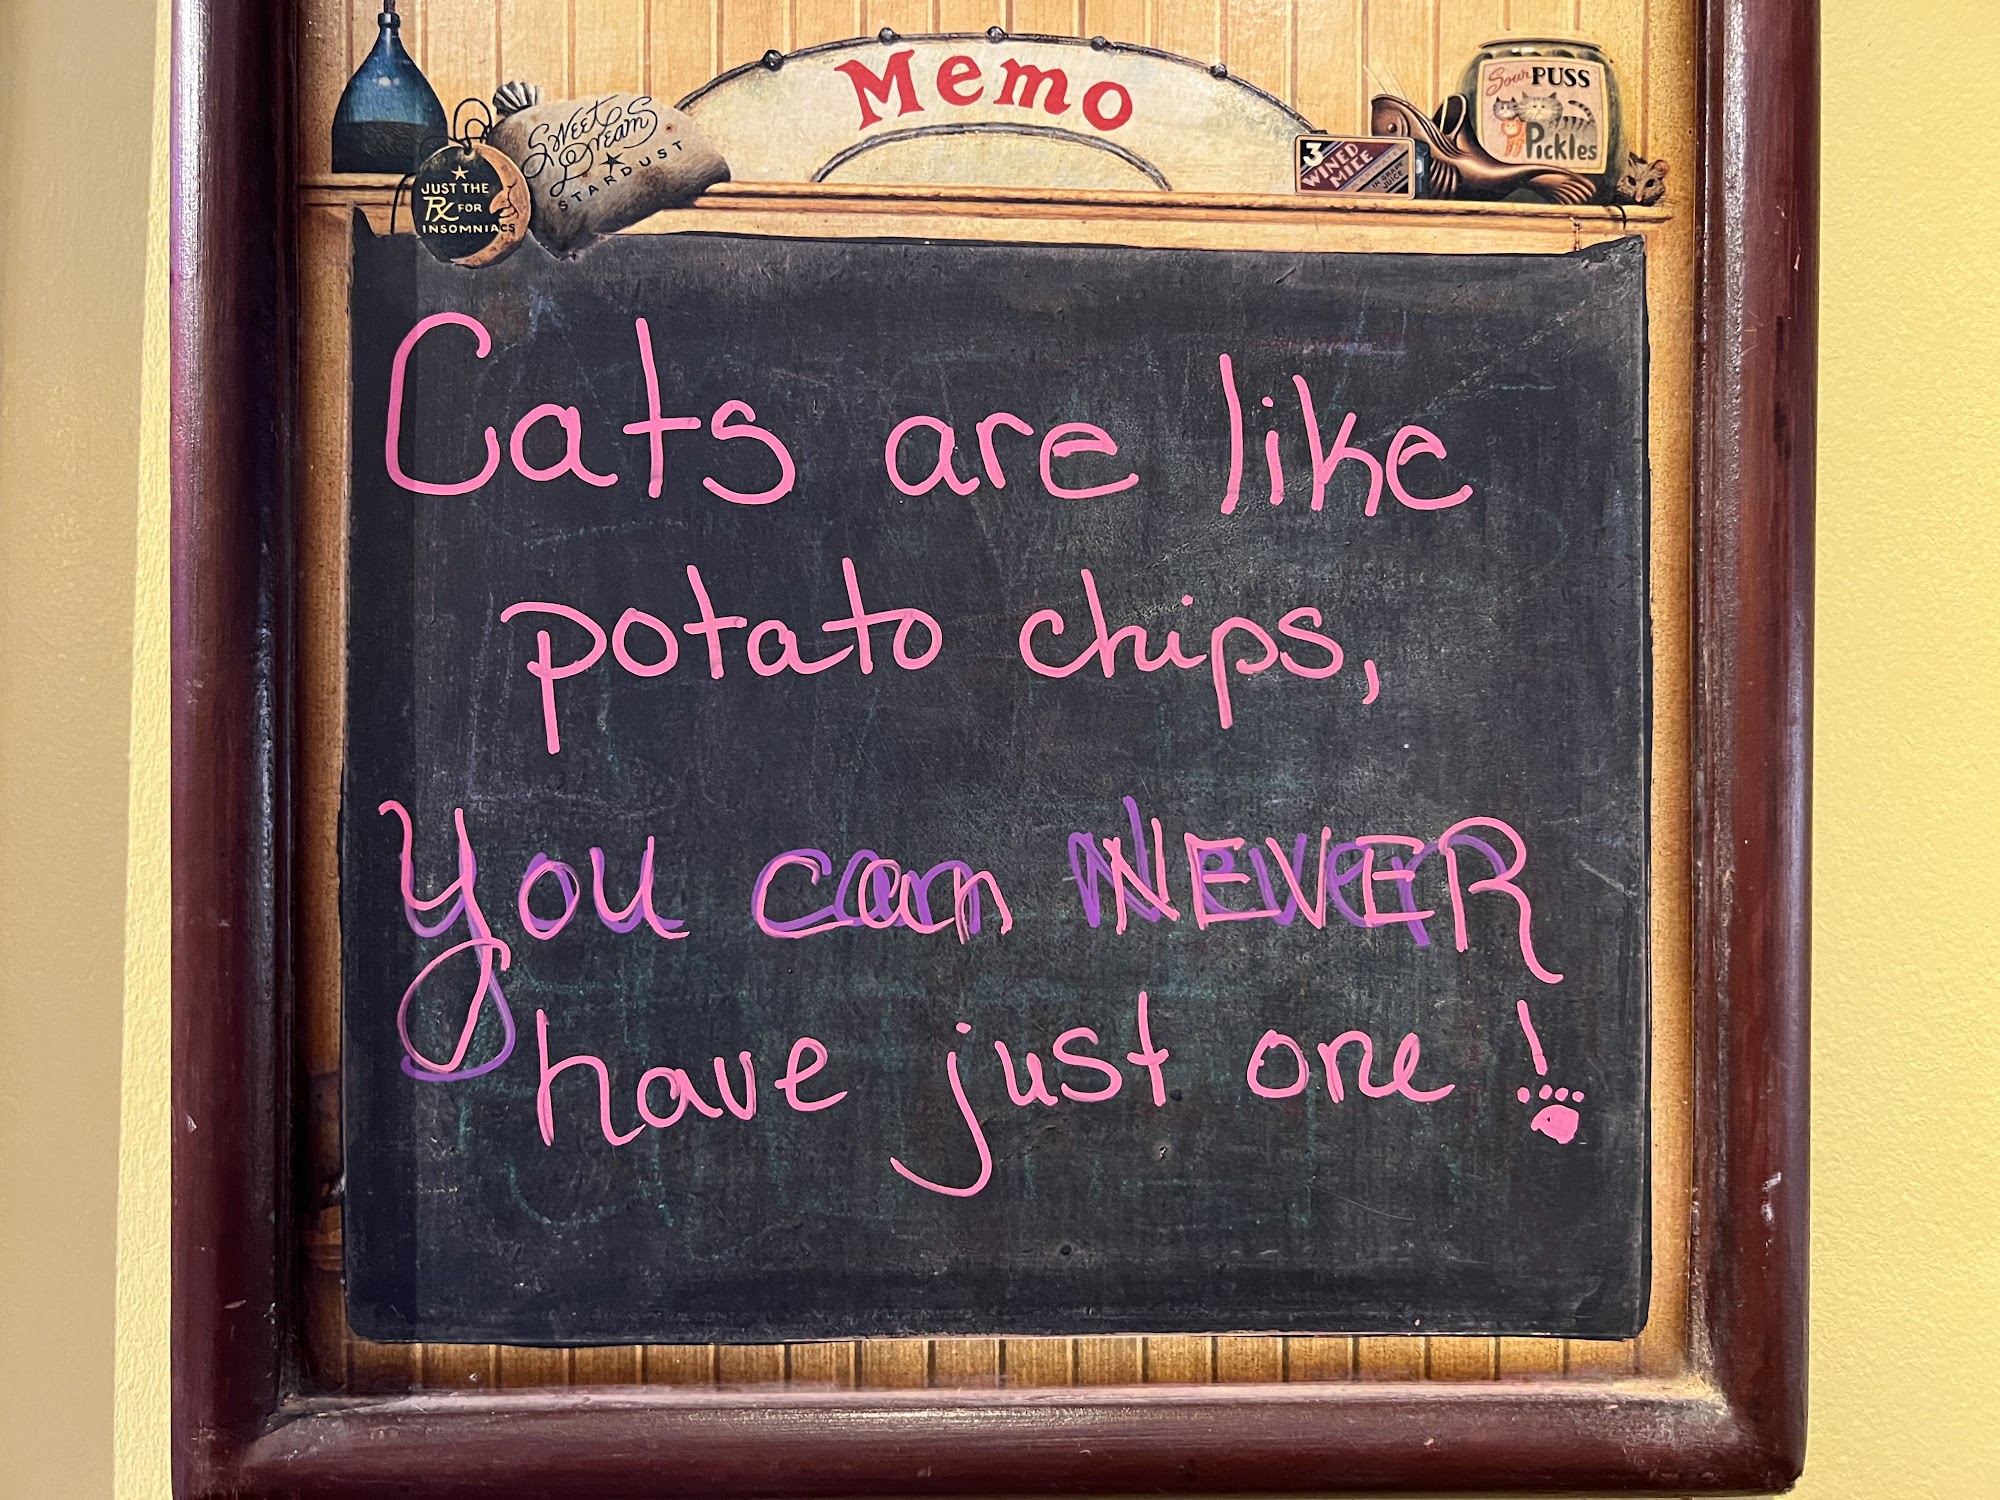 Memo
Sweet
Dreams
STARDUST
JUST THE
Rx FOR
INSOMNIACS
Sour PUSS
Pickles
3
WINED
MICE
IN GRAPE
JUICE
Cats are like
potato chips,
You can NEVER
have just one!